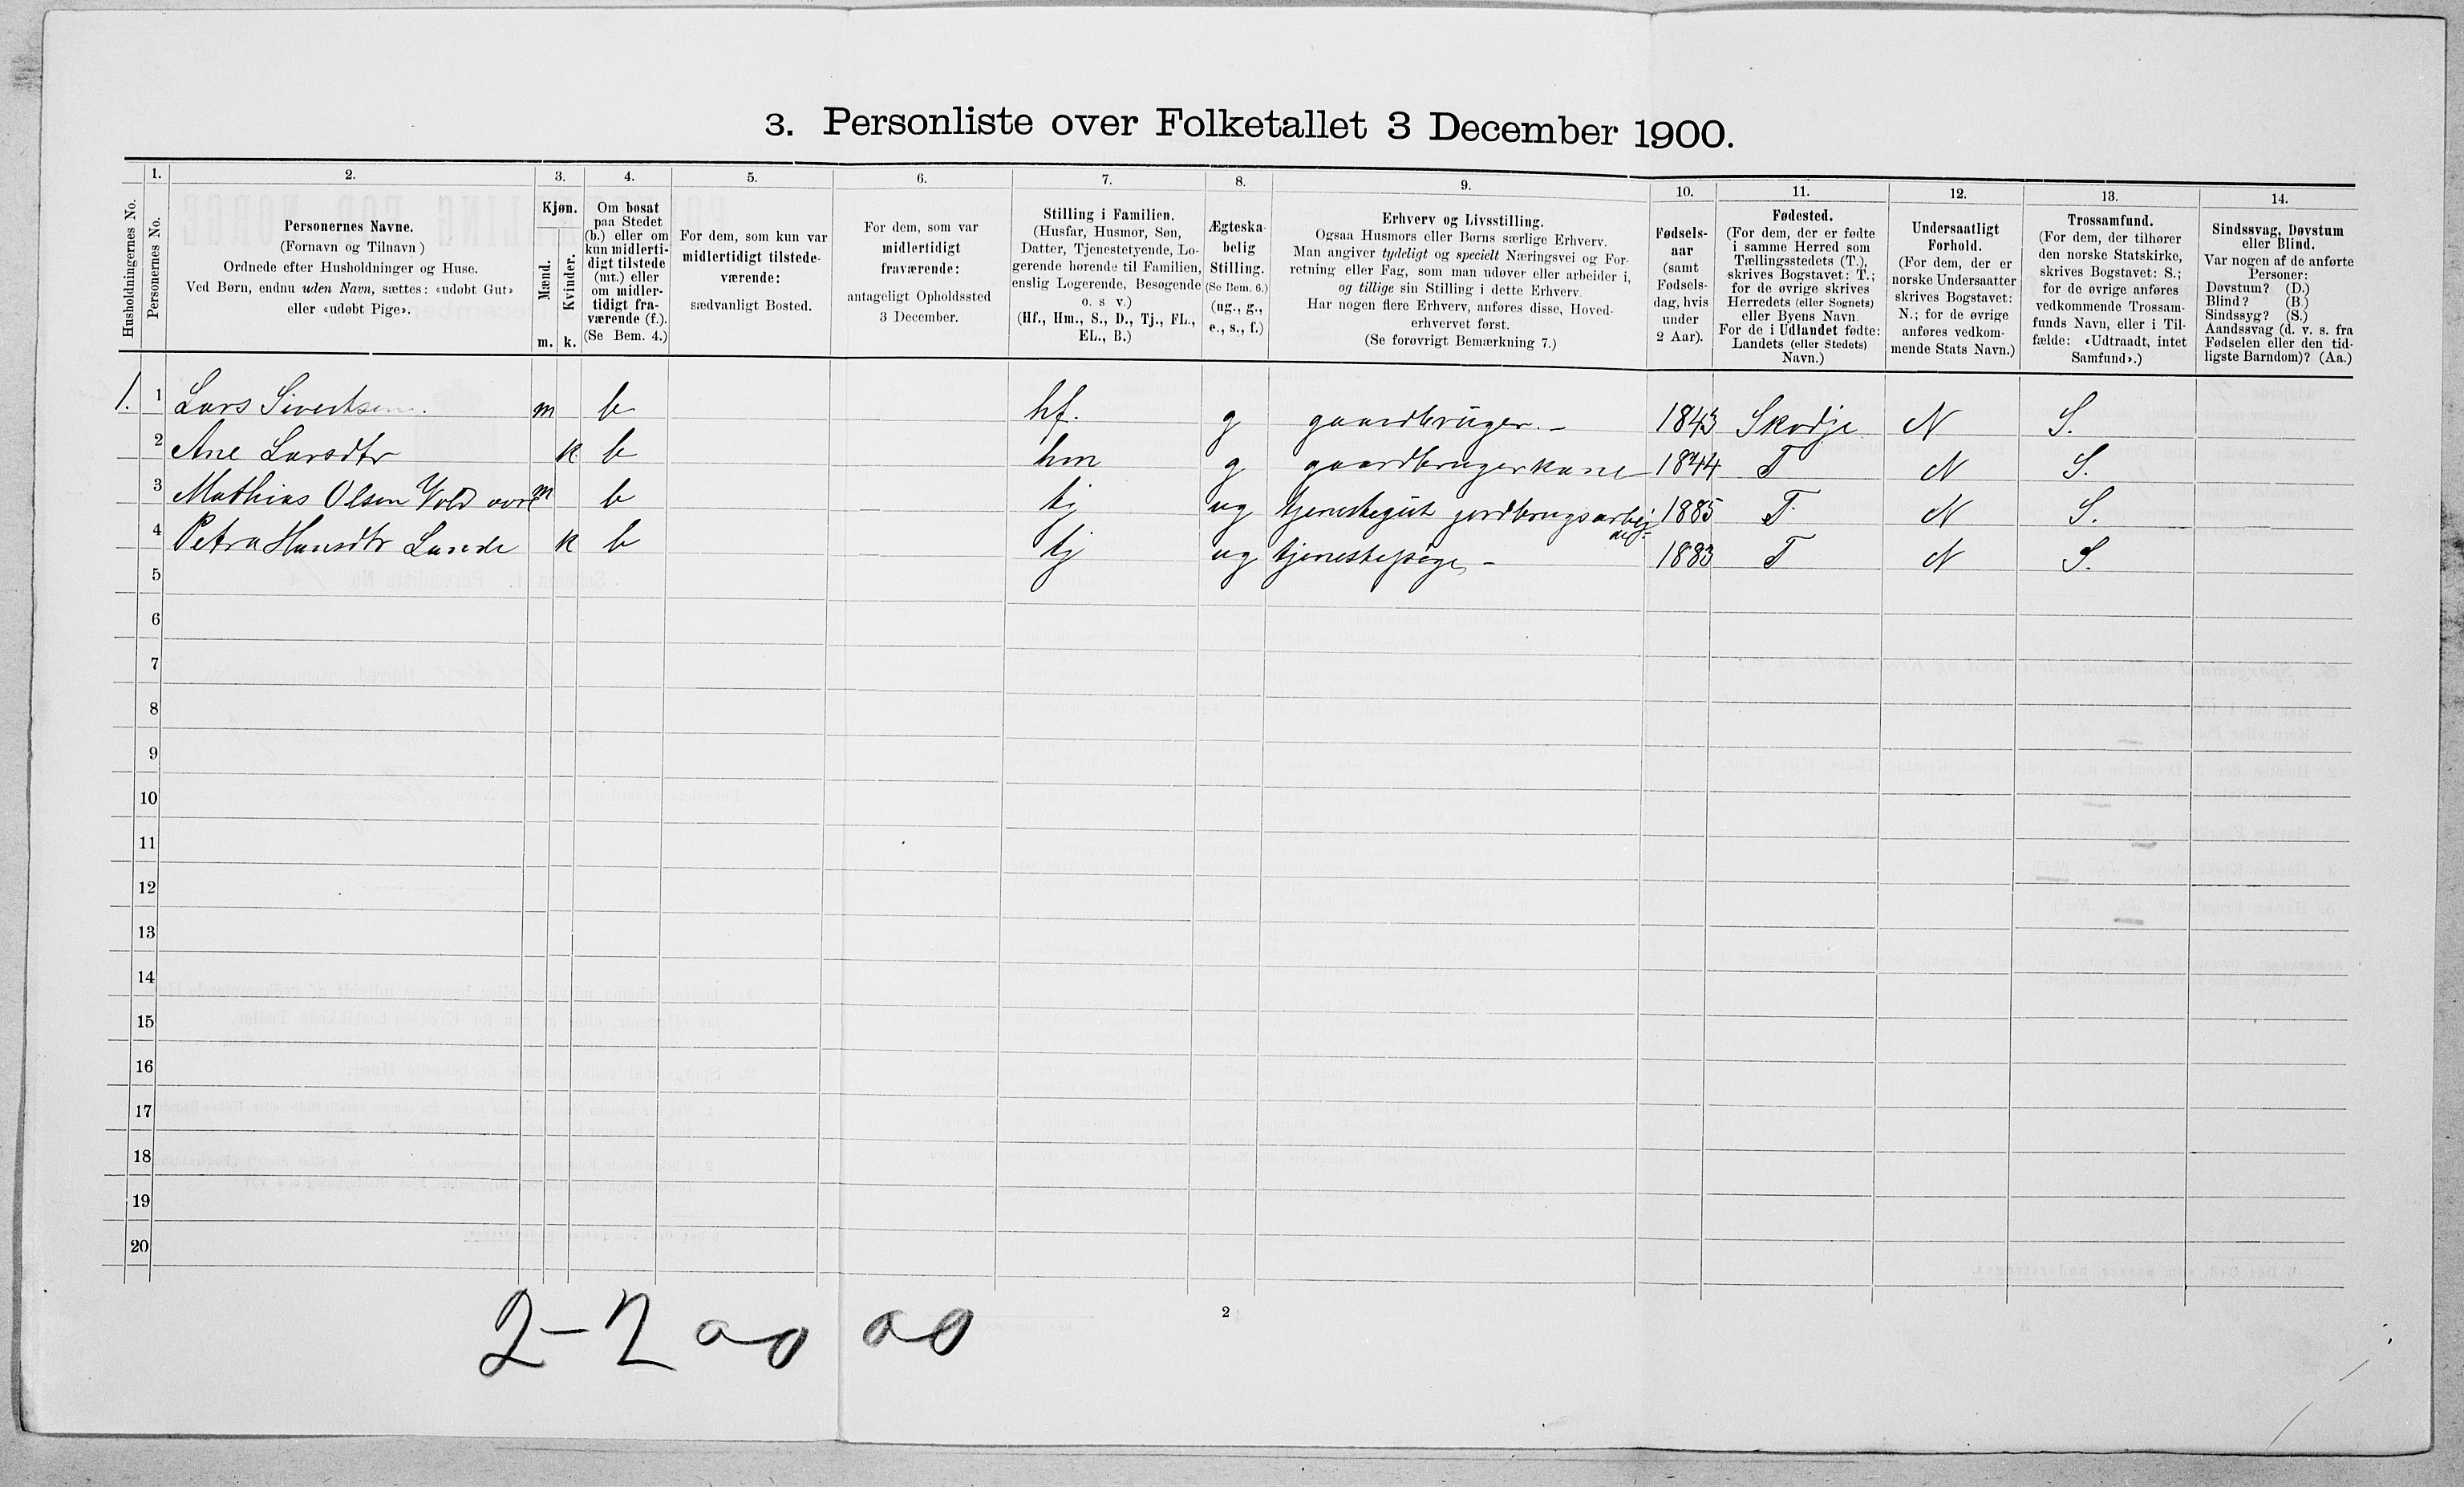 3. Personliste over Folketallet 3 December 1900.
Husholdningernes No.
1.
Personernes No.
2.
Personernes Navne.
(Fornavn og Tilnavn)
Ordnede efter Husholdninger og Huse.
Ved Børn, endnu uden Navn, sættes: «udøbt Gut»
eller «udøbt Pige».
3.
Kjøn.
Mænd.
Kvinder.
m. k.
4.
Om bosat
paa Stedet
(b.) eller om
kun midlerti-
digt tilstede
(mt.) eller
om midler-
tidigt fra-
værende (f.).
(Se Bem. 4.)
5.
For dem, som kun var
midlertidigt tilstede-
værende:
sædvanligt Bosted.
6.
For dem, som var
midlertidigt
fraværende:
antageligt Opholdssted
3 December.
7.
Stilling i Familien.
(Husfar, Husmor, Søn,
Datter, Tjenestetyende, Lo-
gerende hørende til Familien,
enslig Logerende, Besøgende
o. s v.)
(Hf., Hm., S., D., Tj., FL.,
EL., B.)
8.
Ægteska-
belig
Stilling.
(Se Bem. 6.)
(ug., g.,
e., s., f.)
9.
Erhverv og Livsstilling.
Ogsaa Husmors eller Børns særlige Erhverv.
Man angiver tydeligt og specielt Næringsvei og For-
retning eller Fag, som man udøver eller arbeider i,
og tillige sin Stilling i dette Erhverv.
Har nogen flere Erhverv, anføres disse, Hoved-
erhvervet først.
(Se forøvrigt Bemærkning 7.)
10.
Fødsels-
aar
(samt
Fødsels-
dag, hvis
under
2 Aar).
11.
Fødested.
(For dem, der er fødte
i samme Herred som
Tællingsstedets (T.),
skrives Bogstavet: T.;
for de øvrige skrives
Herredets (eller Sognets)
eller Byens Navn.
For de i Udlandet fødte:
Landets (eller Stedets)
Navn.)
12.
Undersaatligt
Forhold.
(For dem, der er
norske Undersaatter
skrives Bogstavet:
N.; for de øvrige
anføres vedkom-
mende Stats Navn.)
13.
Trossamfund.
(For dem, der tilhører
den norske Statskirke,
skrives Bogstavet: S.;
for de øvrige anføres
vedkommende Trossam-
funds Navn, eller i Til-
fælde: «Udtraadt, intet
Samfund».)
14.
Sindssvag, Døvstum
eller Blind.
Var nogen af de anførte
Personer:
Døvstum? (D.)
Blind? (B.)
Sindssyg? (S.)
Aandssvag (d. v. s. fra
Fødselen eller den tid-
ligste Barndom)? (Aa.)
1. 1 Lars Sivertsen. m b hf. g gaardbruger. - 1843 Skodje N S.
2 Ane Larsdtr k b hm g gaardbrugerkone 1844 T N S.
3 Mathias Olsen Vold m b tj ug tjenestegut jordbrugsarbej- 1885 T. N S.
4 Petra Hansdtr Lande k b tj ug tjenestepige, - 1883 T N S.
5
6
7
8
9
10
11
12
13
14
15
16
17
18
19
20
2
2-2 00 00